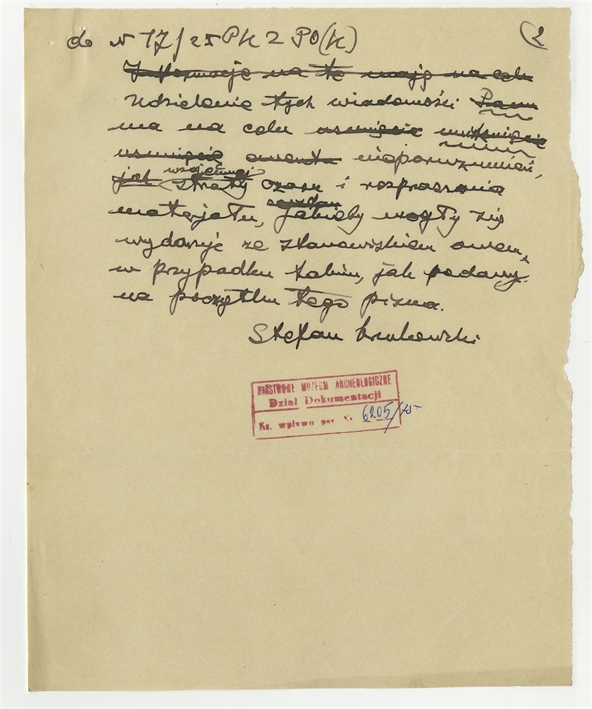 do N 17/25 PK 2 PO(K) (2
Informacje na te mają na celu
Udzielenie tych wiadomości Panu
ma na celu usunięcie uniknięcie
usunięcie nieporozumień,
jak wzajemnej straty czasu i rozpraszania
materjału, jakieby mogły się
wydarzyć ze stanowiskiem
w przypadku takim, jak podany
na początku tego pisma.
Stefan Krukowski
PAŃSTWOWE MUZEUM ARCHEOLOGICZNE
Dział Dokumentacji
Ks. wpływu poz. N. 6205/